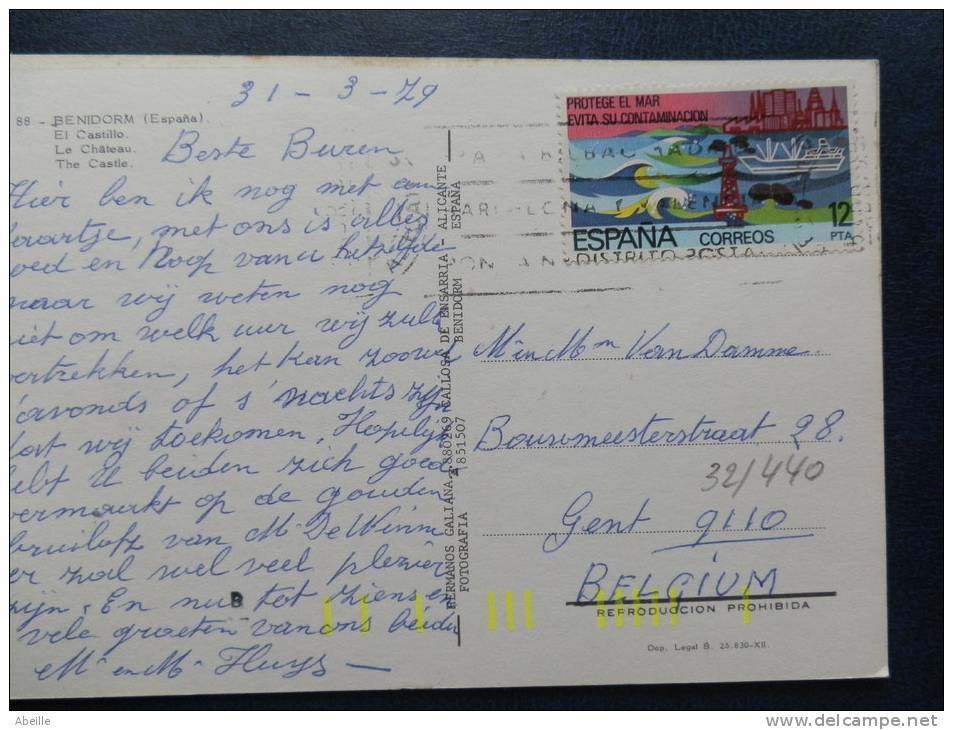 31 - 3 - 79
88 - BENIDORM (España).
El Castillo.
Le Château.
The Castle.
Beste Buren
Hier ben ik nog met een
kaartje, met ons is alles
goed en hoop van u hetzelfde
maar wij weten nog
niet om welk uur wij zulle
vertrekken, het kan zoowel
s'avonds of s'nachts zijn
dat wij toekomen, Hopelijk
hebt U beiden zich goed
vermaakt op de gouden
bruiloft van Mr De Winne
er zal wel veel plezier
zijn. En nu tot ziens en
vele groeten van ons beiden
Mr en Mr Huys —
HERMANOS GALIANA. 880269 CALLOSA DE ENSARRIA - ALICANTE
FOTOGRAFIA 851507 BENIDORM ESPAÑA
PROTEGE EL MAR
EVITA SU CONTAMINACION
12
PTA
ESPAÑA CORREOS
DISTRITO POSTAL
Mr en Mm Van Damme
Bouwmeesterstraat 28.
32/440
Gent 9110
BELGIUM
REPRODUCCION PROHIBIDA
B
Dep. Legal B. 25.830-XII.
Abeille
www.delcampe.net